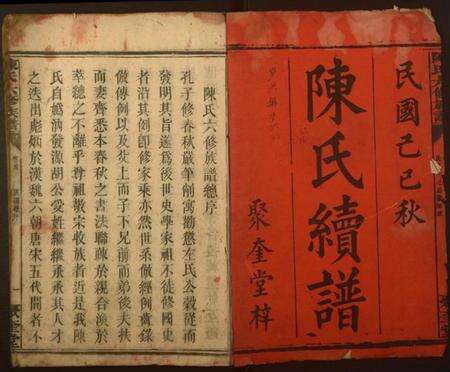 民國己巳秋
陳氏續譜
聚奎堂梓
陳氏六修族譜總序
孔子修春秋嚴筆削寓勸懲左氏公穀從而
發明其旨遂爲後世史學家祖不徒修國史
者沿其例即修家乘亦然世系倣經例齒錄
倣傳例以及
上而子下兄前而弟後夫扶
而妻齊悉本春秋之書法聯疎於親合渙於
萃總之不離乎尊祖敬宗收族者近是我陳
氏自嬀汭發源胡公受姓繼繼承承其人才
之迭出彪炳於漢魏六朝唐宋五代間者不